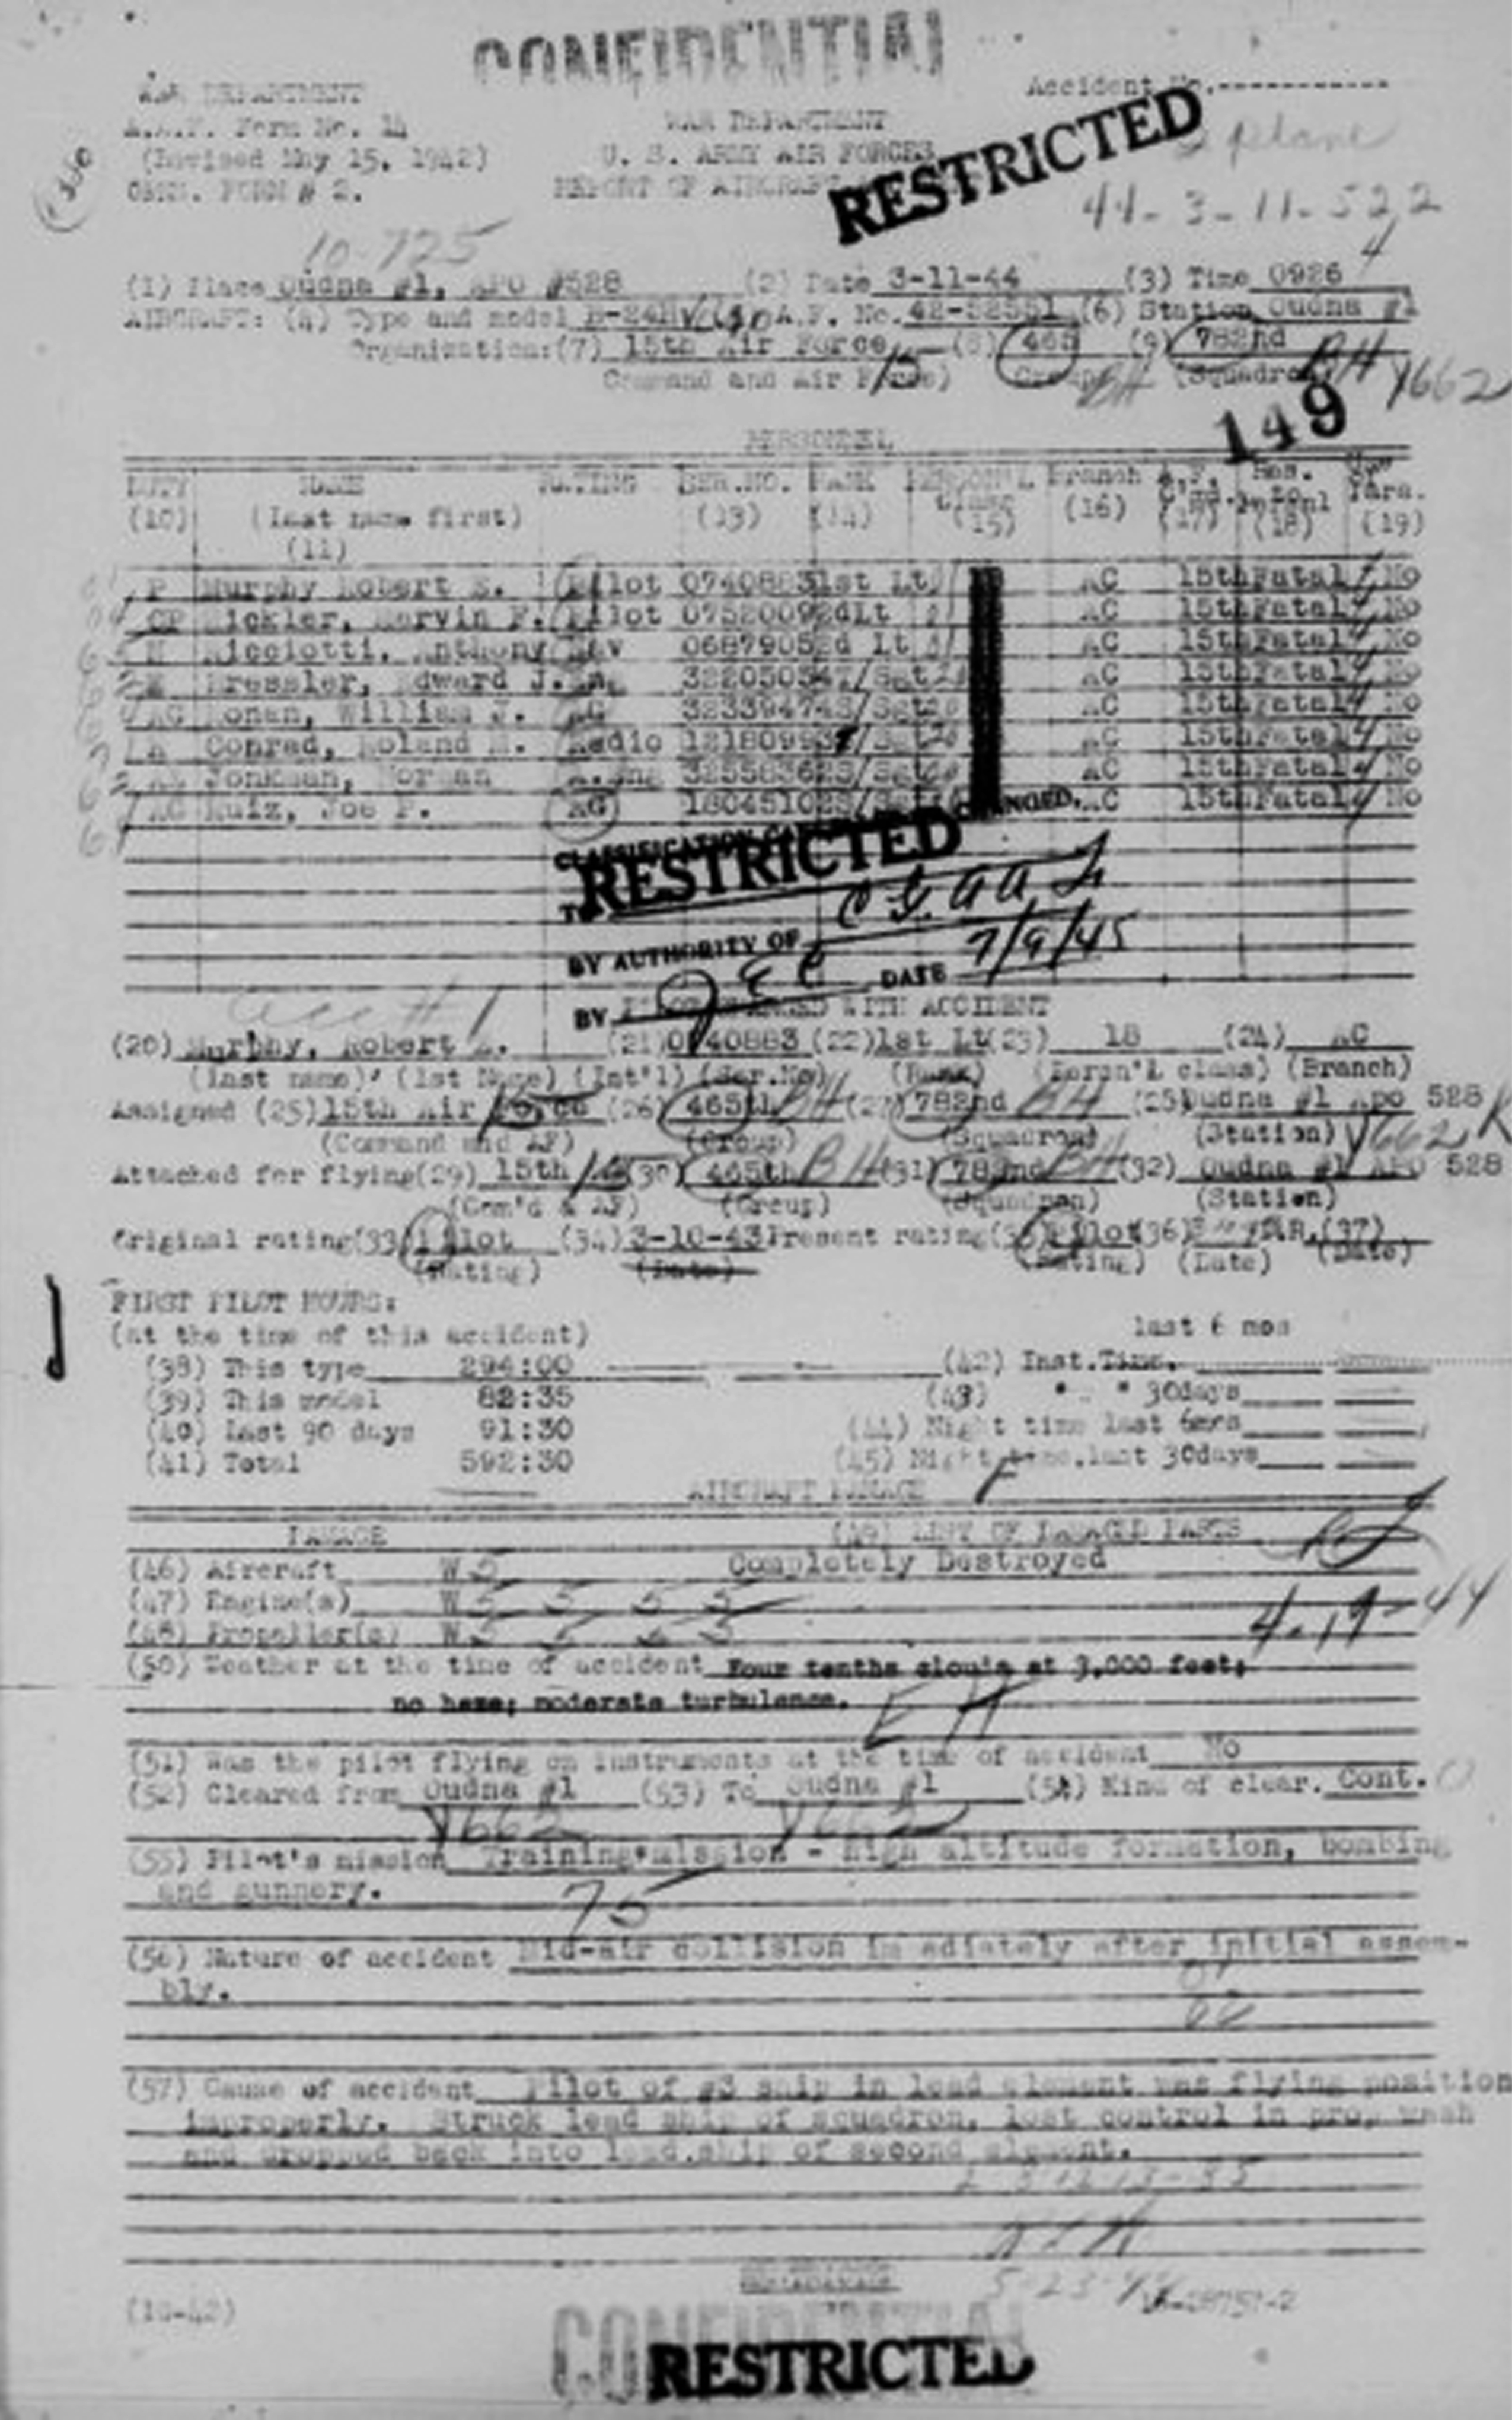 CONFIDENTIAL
WAR DEPARTMENT
A.A.F. Form No. 14
(Revised May 15, 1942)
FORM # 2.
WAR DEPARTMENT
U. S. ARMY AIR FORCES
REPORT OF AIRCRAFT
Accident No.
RESTRICTED
plane
44-3-11-522
4
10-725
(1) Place Oudna #1, APO #528 (2) Date 3-11-44 (3) Time 0926
AIRCRAFT: (4) Type and model B-24H A.F. No. 42-52551 (6) Station Oudna #1
Organization: (7) 15th Air Force 15 (8) 465 (9) 782nd BH
(Command and Air Force) (Group) BH (Squadron) Y662
149
PERSONNEL
DUTY NAME RATING SER.NO. RANK PERSONNEL Branch A.F. Res. Use
(10) (Last name first) (13) (14) Class (16) C'md. to Para.
(11) (15) (17) Persnl (18) (19)
P Murphy Robert E. Pilot 0740883 1st Lt AC 15th Fatal 4 No
CP Bickler, Marvin F. Pilot 0752009 2dLt AC 15th Fatal 4 No
N Ricciotti, Anthony Nav 0687905 2d Lt AC 15th Fatal 4 No
E Bressler, Edward J. Eng 32205034 /Sgt AC 15th Fatal 4 No
AG Ronan, William J. AG 32339474 S/Sgt AC 15th Fatal 4 No
R Conrad, Roland Radio 12180993 /Sgt AC 15th Fatal 4 No
AE Jonkman, Norman A.Eng 32558362 S/Sgt AC 15th Fatal 4 No
AG Ruiz, Joe P. AG 18045102 S/Sgt AC 15th Fatal 4 No
CLASSIFICATION CHANGED
TO RESTRICTED
BY AUTHORITY OF C.G. A A F
BY J E C DATE 7/9/45
acc # 1
PILOT CHARGED WITH ACCIDENT
(20) Murphy, Robert E. (21) 0740883 (22) 1st Lt (23) 18 (24) AC
(Last name) (1st Name) (Int'l) (Ser.No) (Rank) (Persn'l class) (Branch)
Assigned (25) 15th Air Force 15 (26) 465th BH (27) 782nd BH (25) Oudna #1 Apo 528
(Command and AF) (Group) (Squadron) (Station) Y662
Attached for flying (29) 15th 15 (30) 465th BH (31) 782nd BH (32) Oudna #1 APO 528
(Com'd & AF) (Group) (Squadron) (Station)
Original rating (33) Pilot (34) 3-10-43 Present rating (35) Pilot (36) (37)
(Rating) (Date) (Rating) (Date) (Date)
FIRST PILOT HOURS:
(at the time of this accident) last 6 mos
(38) This type 294:00 (42) Inst.Time.
(39) This model 82:35 (43) " " 30days
(40) Last 90 days 91:30 (44) Night time last 6mos
(41) Total 592:30 (45) Night time.last 30days
AIRCRAFT DAMAGE
DAMAGE (49) LIST OF DAMAGED PARTS
(46) Aircraft W 5 Completely Destroyed
(47) Engine(s) W 5 5 5 5
(48) Propeller(s) W 5 5 5 5
4-19-44
(50) Weather at the time of accident Four tenths clouds at 3,000 feet;
no haze; moderate turbulence.
(51) Was the pilot flying on instruments at the time of accident No
(52) Cleared from Oudna #1 (53) To Oudna #1 (54) Kind of clear. Cont.
Y662 Y662
(55) Pilot's mission Training mission - High altitude formation, bombing
and gunnery.
75
(56) Nature of accident Mid-air collision immediately after initial assem-
bly.
(57) Cause of accident Pilot of #3 ship in lead element was flying position
improperly. Struck lead ship of squadron, lost control in prop wash
and dropped back into lead ship of second element.
RESTRICTED
5-23-44
(10-42)
CONFIDENTIAL
RESTRICTED